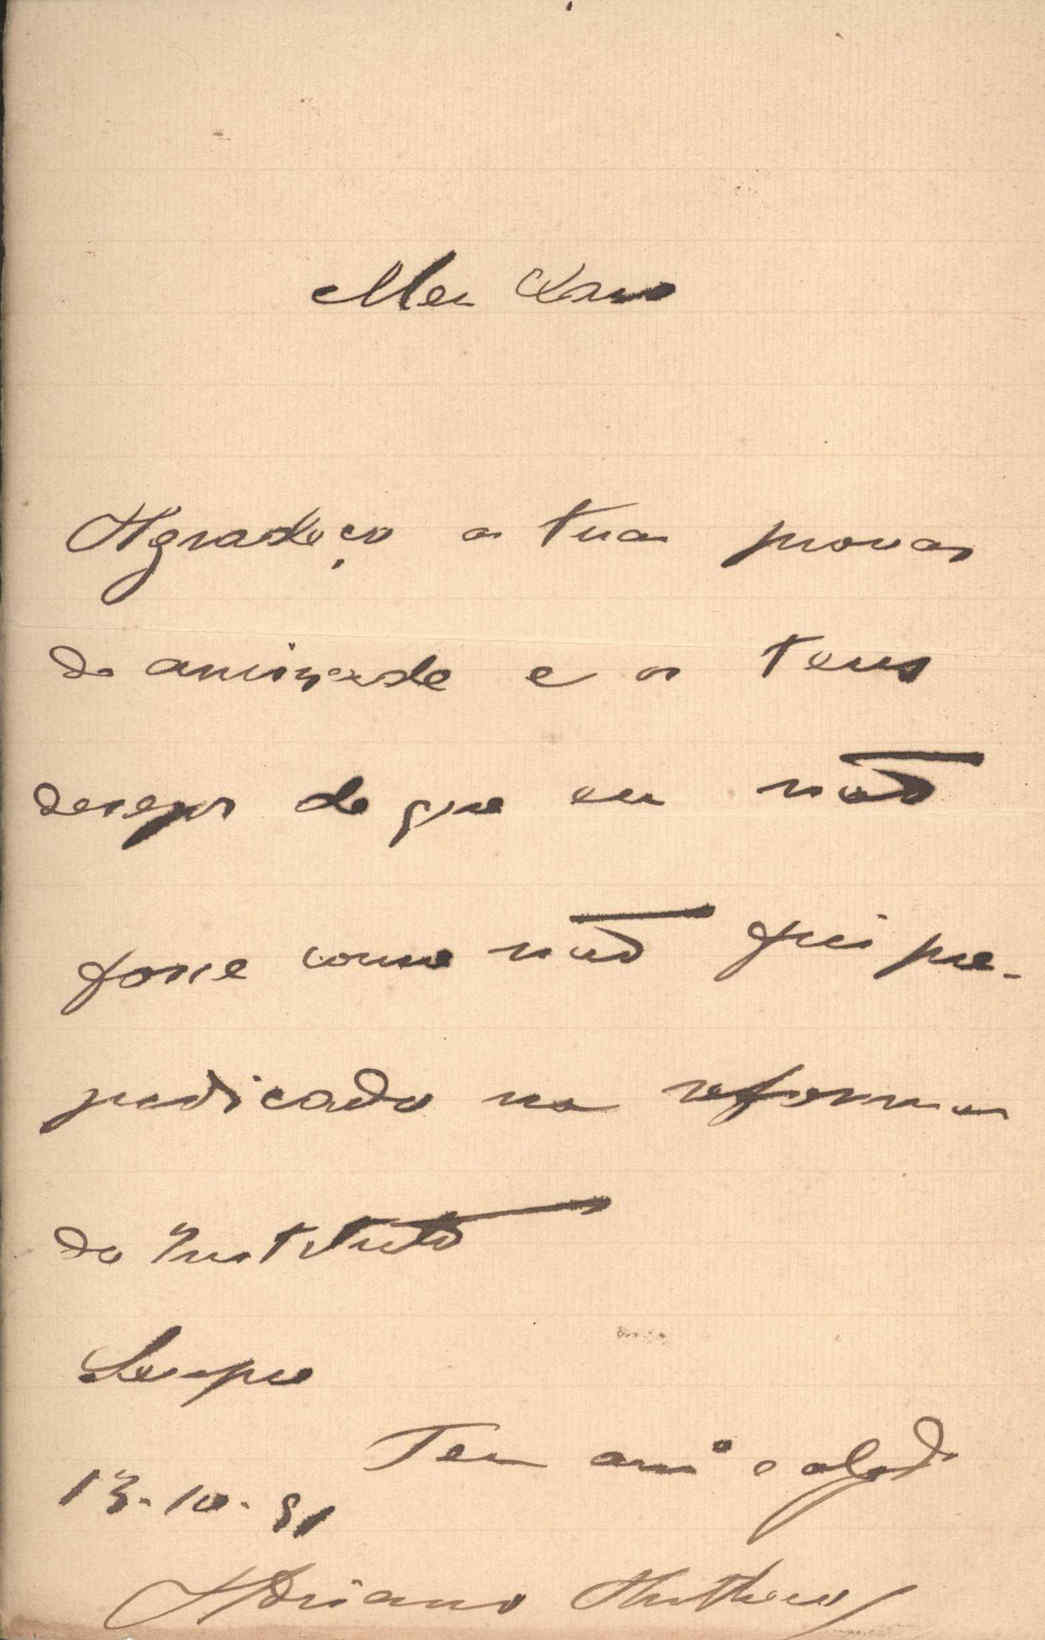 Meu Caro
Agradeço a tua prova
de amizade e os teus
desejos de que eu não
fosse como não fui pre-
judicado na reforma
do Instituto
Sempre
Teu am.º e
13-10-91
Adriano